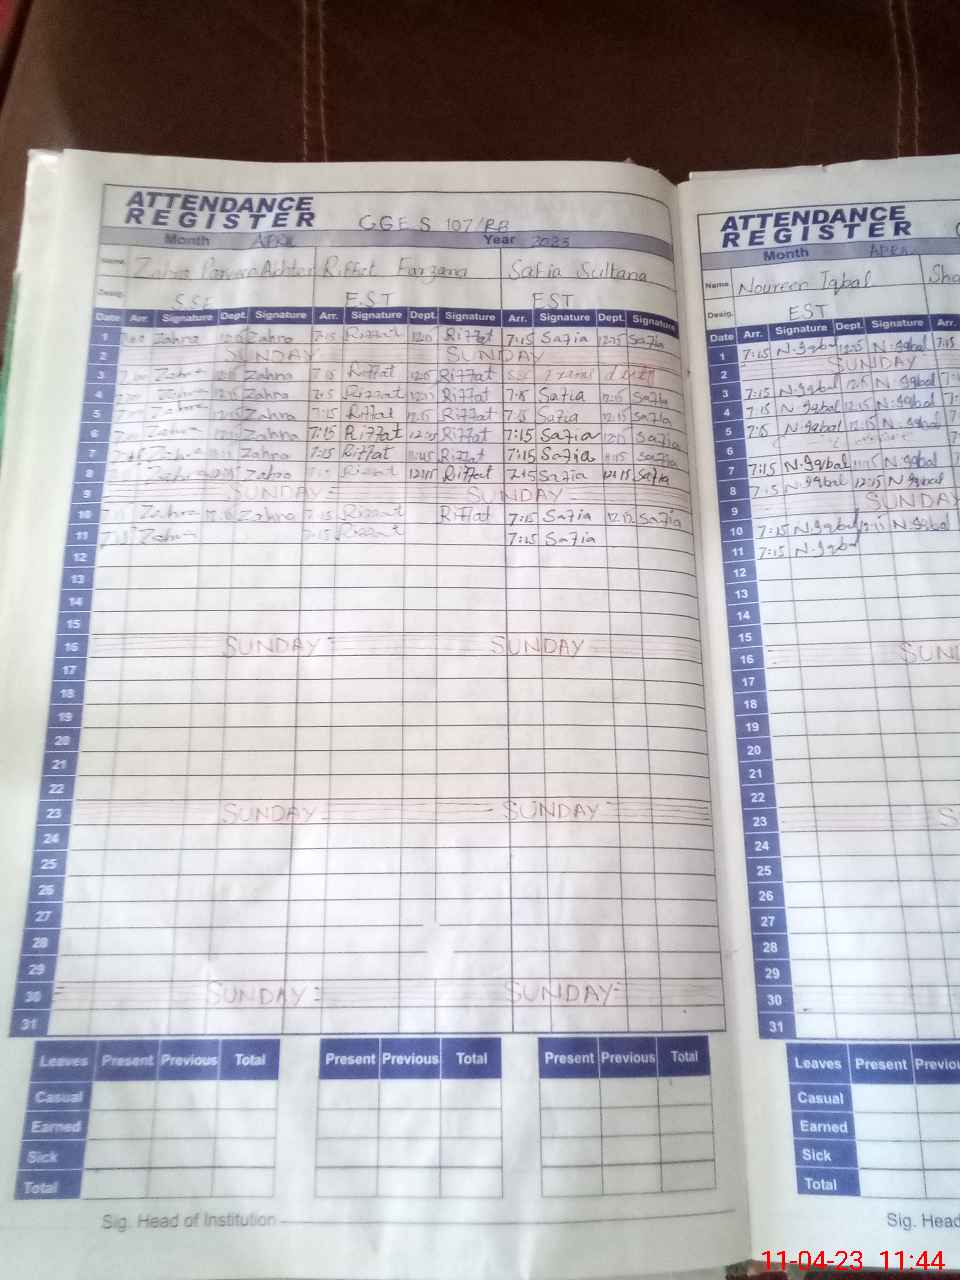 ATTENDANCE
REGISTER G.G.E.S 107/RB
Month APRIL Year 2023
Name Zahra Parveen Achter Riffet Farzana Safia Sultana
Desig. S.S.E E.S.T E.S.T
Date Arr. Signature Dept. Signature Arr. Signature Dept. Signature Arr. Signature Dept. Signature
1 Zahra Zahra 7:15 Riffat Riffat 7:15 Safia 12:15 Safia
2 SUNDAY SUNDAY
3 Zahra Zahra Riffat 12:15 Riffat Exams duty
4 Zahra Zahra Riffat Riffat Safia 12:15 Safia
5 Zahra Zahra 7:15 Riffat 12:15 Riffat Safia 12:15 Safia
6 Zahra Zahra 7:15 Riffat Riffat 7:15 Safia Safia
7 Zahra Zahra 7:15 Riffat 11:45 Riffat 7:15 Safia Safia
8 Zahra Zahra Riffat Riffat 7:15 Safia 12:15 Safia
9 SUNDAY SUNDAY
10 Zahra Zahra 7:15 Riffat Riffat 7:15 Safia Safia
11 Zahra Riffat 7:15 Safia
12
13
14
15
16 SUNDAY SUNDAY
17
18
19
20
21
22
23 SUNDAY SUNDAY
24
25
26
27
28
29
30 SUNDAY SUNDAY
31
Leaves Present Previous Total Present Previous Total Present Previous Total
Casual
Earned
Sick
Total
Sig. Head of Institution
ATTENDANCE
REGISTER
Month APRIL
Name Noureen Iqbal
Desig. EST
Date Arr. Signature Dept. Signature Arr.
1 7:15 N.Iqbal 12:15 N.Iqbal 7:15
2 SUNDAY
3 7:15 N.Iqbal N.Iqbal
4 7:15 N.Iqbal 12:15 N.Iqbal
5 7:15 N.Iqbal 12:15 N.Iqbal
6
7 7:15 N.Iqbal N.Iqbal
8 N.Iqbal 12:15 N.Iqbal
9 SUNDAY
10 7:15 N.Iqbal N.Iqbal
11 7:15 N.Iqbal
12
13
14
15
16
17
18
19
20
21
22
23
24
25
26
27
28
29
30
31
Leaves Present
Casual
Earned
Sick
Total
Sig.
11-04-23 11:44